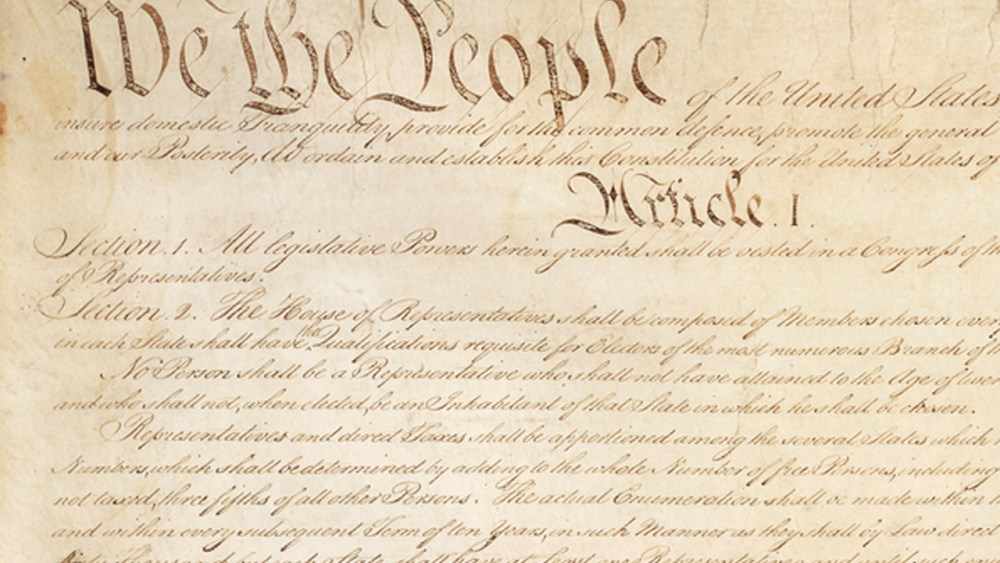 We the People of the United States
insure domestic Tranquility, provide for the common defence, promote the general
and our Posterity, do ordain and establish this Constitution for the United States of
Article. I.
Section. 1. All legislative Powers herein granted shall be vested in a Congress of th
of Representatives.
Section. 2. The House of Representatives shall be composed of Members chosen ever
in each State shall have the Qualifications requisite for Electors of the most numerous Branch of th
No Person shall be a Representative who shall not have attained to the Age of twen
and who shall not, when elected, be an Inhabitant of that State in which he shall be chosen.
Representatives and direct Taxes shall be apportioned among the several States which
Numbers, which shall be determined by adding to the whole Number of free Persons, including
not taxed, three fifths of all other Persons. The actual Enumeration shall be made within
and within every subsequent Term of ten Years, in such Manner as they shall by Law direct
thirty Thousand, but each State shall have at Least one Representative; and until such en